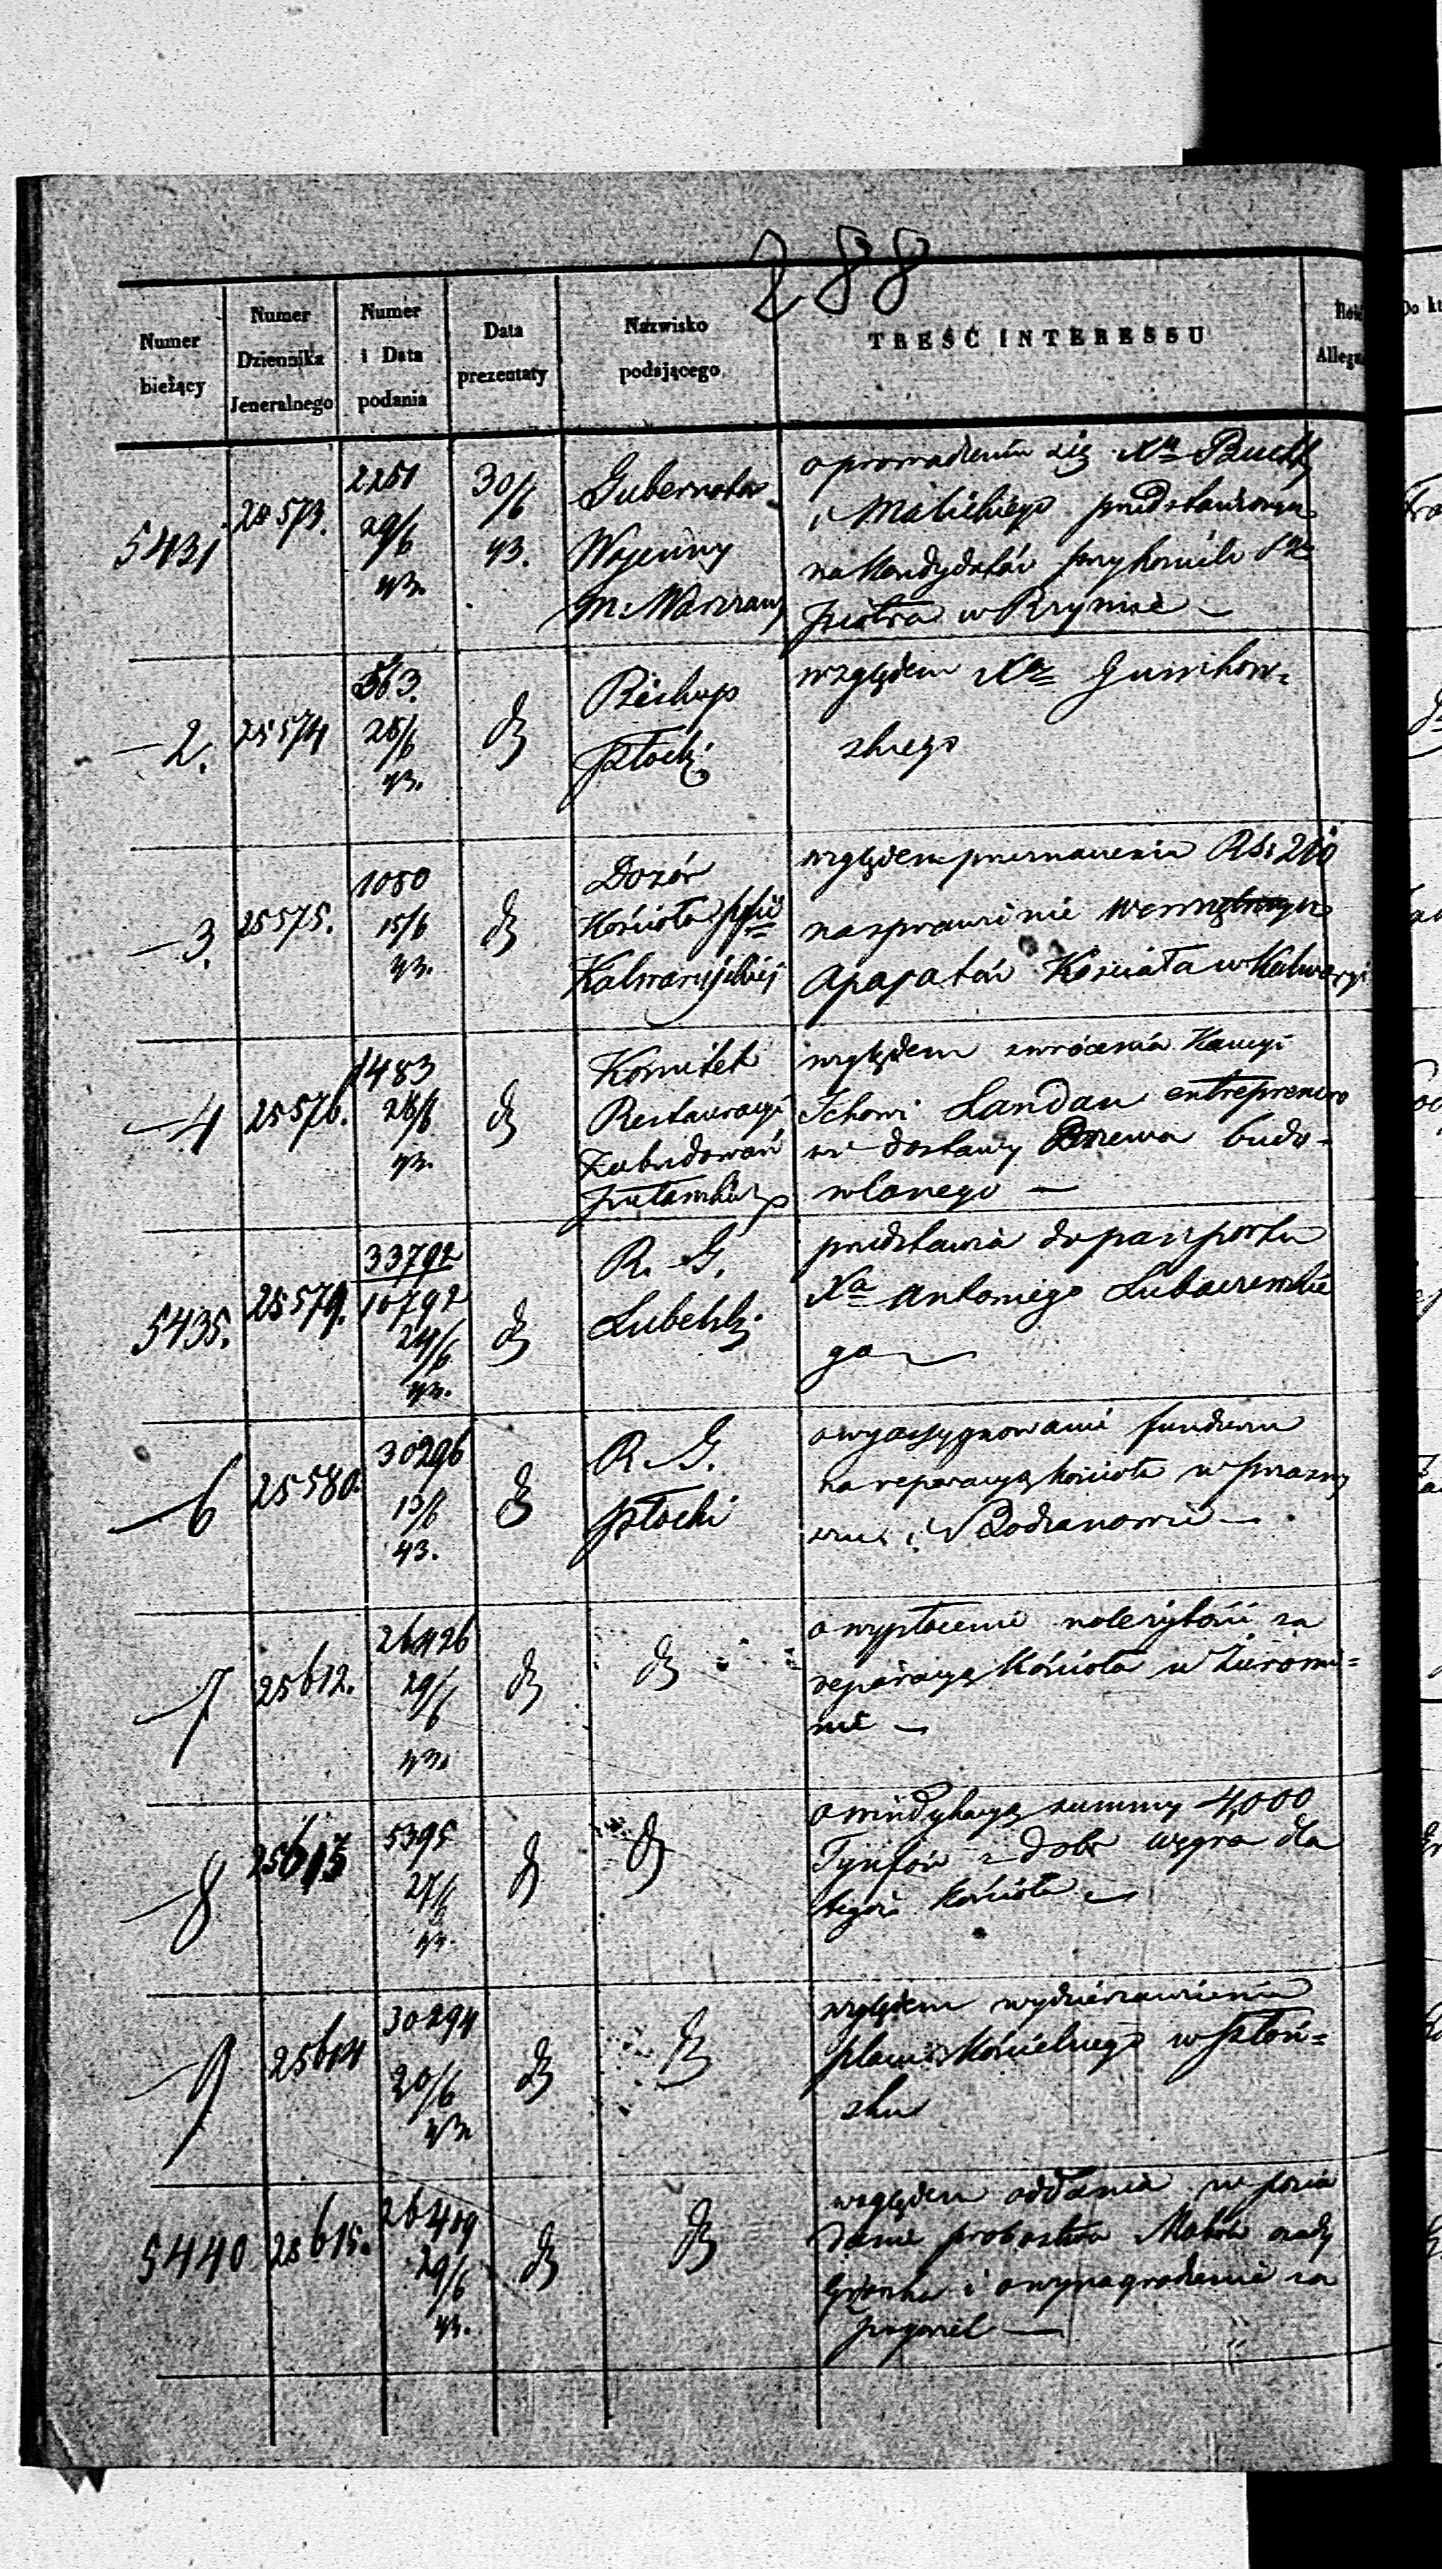 288
Numer bieżący
Numer Dziennika Jeneralnego
Numer i Data podania
Data prezentaty
Nazwisko podającego
TREŚĆ INTERESSU
5431 25573. 2251 29/6 43. 30/6 43.
Gubernator
Wojenny
M. Warszawy
o prowadzeniu się Xa
i Malickiego przedstawionych
na Kandydatów przy kościele Sgo
Piotra w Rzymie —
—2. 25574 563. 25/6 43. d
Biskup
Płocki
względem Xa
skiego
—3. 25575. 1080 15/6 43. d
Dozór
Kościoła
Kalwaryjskiej
względem przeznaczenia RSr 200
na sprawienie wewnętrznych
Aparatów Kościoła w Kalwaryi
—4 25576. 1483 28/6 43. d
Komitet
Restauracyi
Zabudowań
względem zwrócenia Kaucyi
Ickowi Landau entreprenero
wi dostawy Drzewa budo-
wlanego —
5435. 25579. 33792 10792 24/6 43. d
R. G.
Lubelski
przedstawia do paszportu
Xa Antoniego
go —
—6 25580. 30296 13/6 43. d
R. G.
Płocki
o wyassygnowanie funduszu
na reparacyą kościoła w Przasny
szu i Bodzanowie —
—7 25612. 26426 29/6 43. d d
o wypłacenie należytości za
reparacyą Kościoła w Żuromi-
nie —
—8 25613 5395 27/6 43. d d
o windykacyą summy 4,000
Tynfów z dóbr Węgra dla
tegoż Kościoła —
—9 25614 30294 20/6 43 d d
względem wydzierżawienia
placu Kościelnego w Płoń-
sku
5440 25615. 26409 29/6 43. d d
względem oddania w posia
danie probostwa
i o wynagrodzenie za
pogorzel —